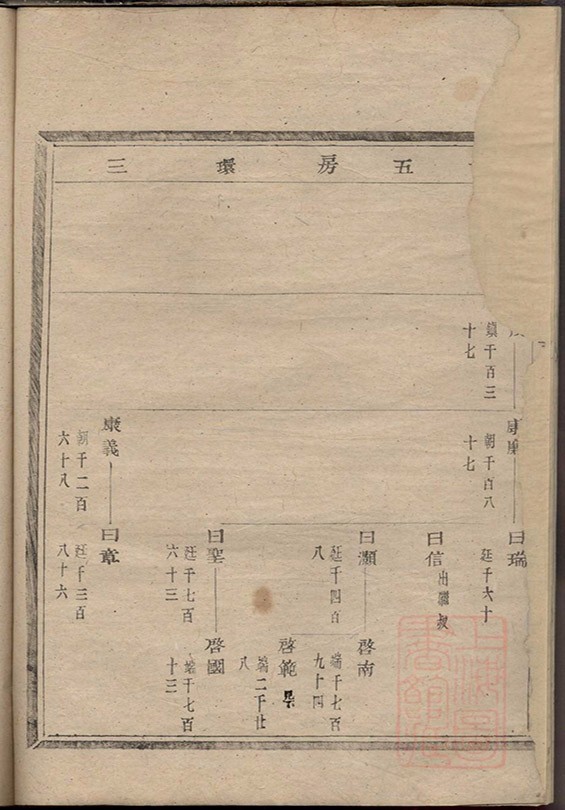 五房環三
鎮千百三
十七
康
朝千百八
十七
曰瑞
廷千六十
曰信
出繼叔
曰灝
廷千四百
八
啓南
端千七百
九十四
啓範
端二千廿
八
曰聖
廷千七百
六十三
啓國
端千七百
十三
康義
朝千二百
六十八
曰章
廷千三百
八十六